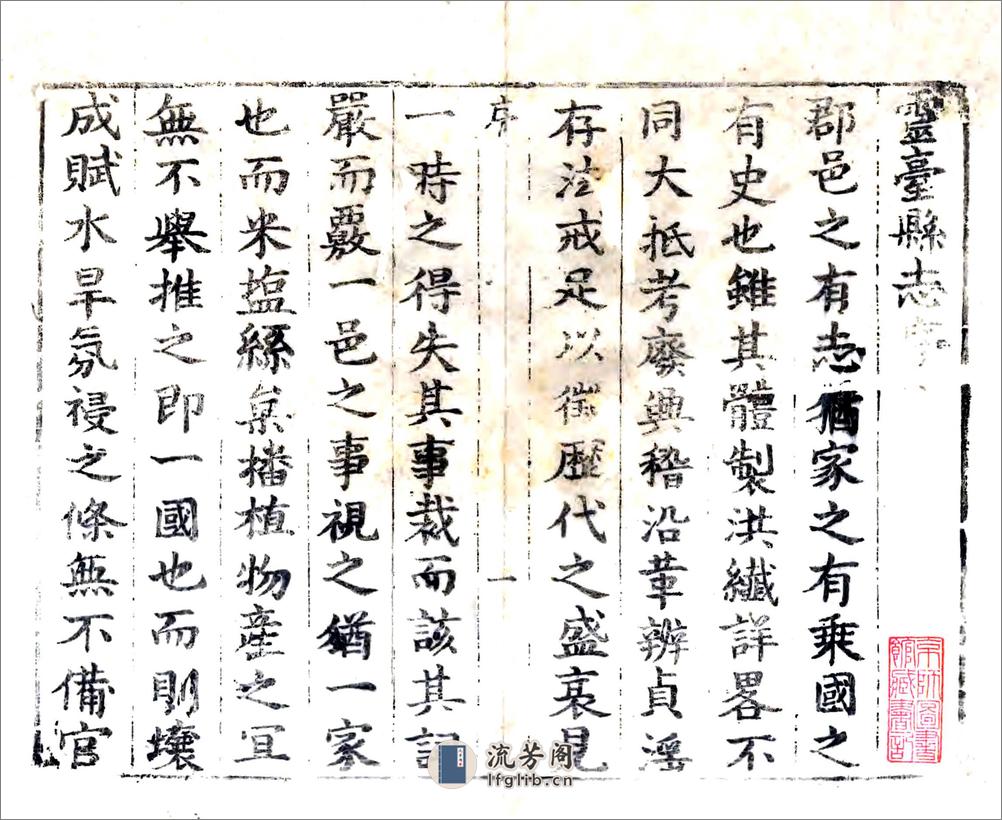 靈臺縣志序
郡邑之有志猶家之有乘國之
有史也雖其體製洪纎詳畧不
同大抵考廢興稽沿革辨貞淫
存法戒足以徵歷代之盛衰見
序
一
一時之得失其事裁而該其記
嚴而覈一邑之事視之猶一家
也而米塩絲枲播植物產之宜
無不舉推之即一國也而則壤
成賦水旱氛祲之條無不備官
京師圖書
館藏書記
流芳阁
lfglib.cn